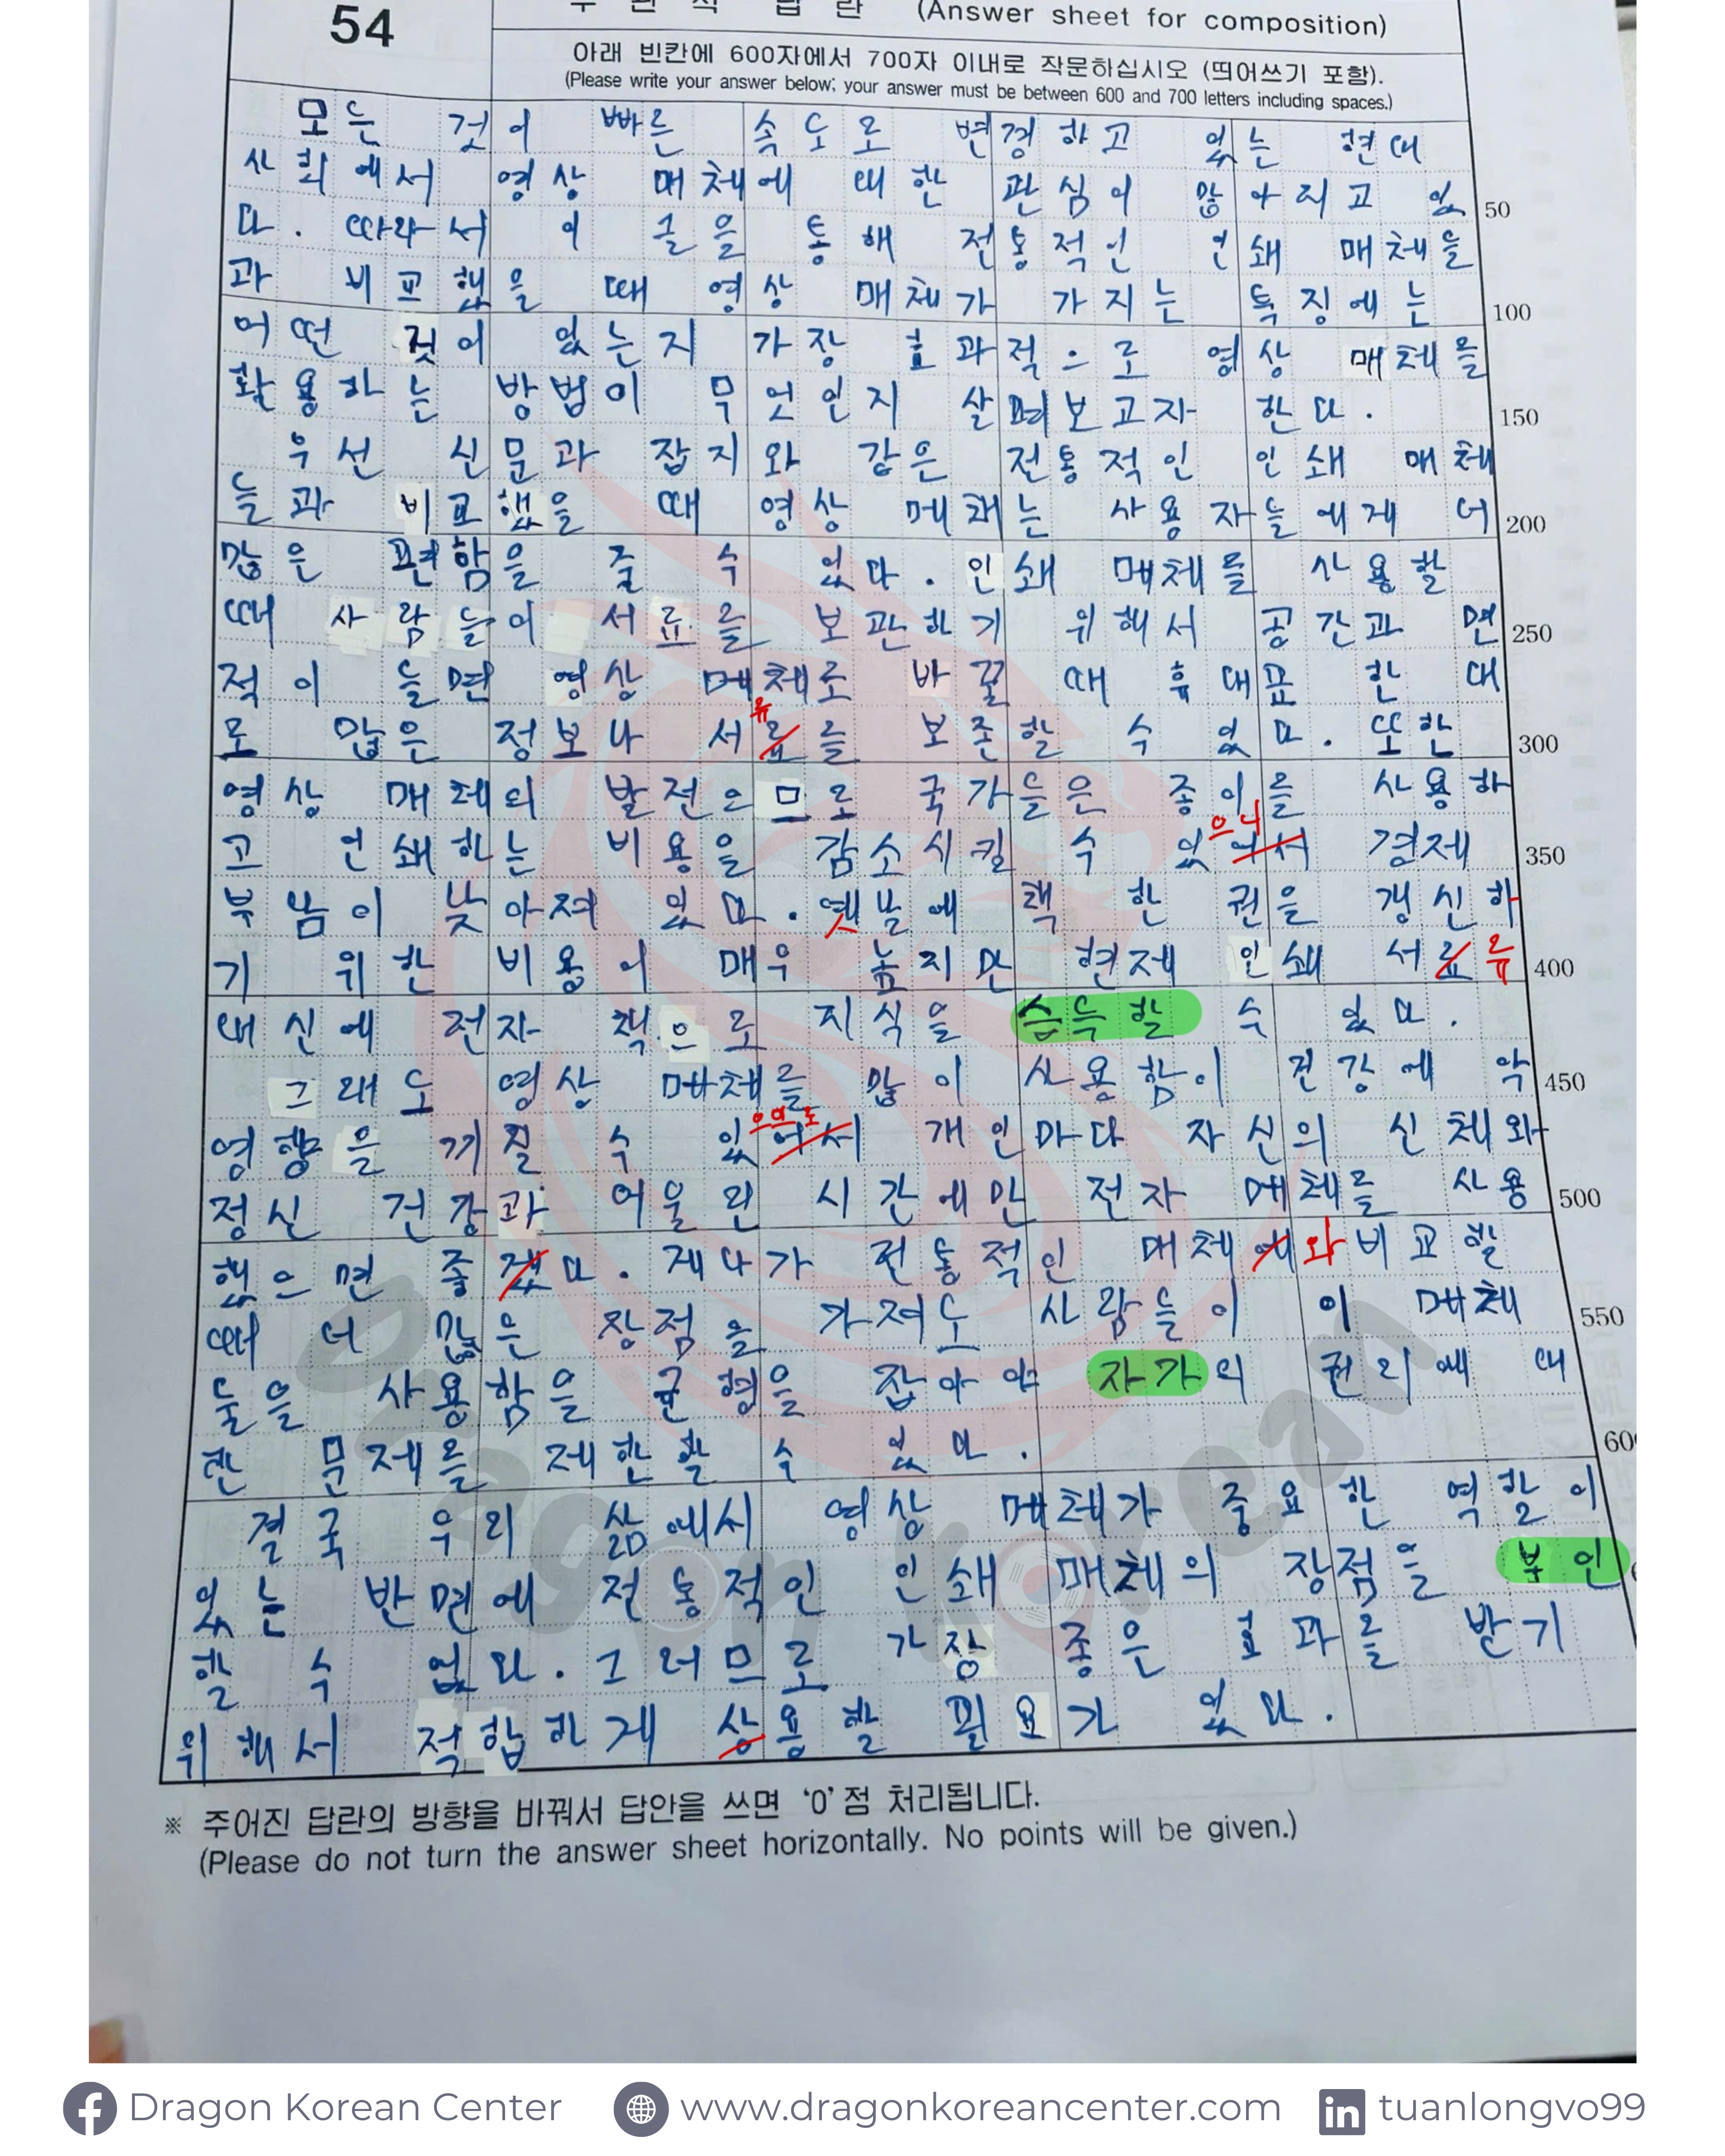 54
주 관 식 답 란 (Answer sheet for composition)
아래 빈칸에 600자에서 700자 이내로 작문하십시오 (띄어쓰기 포함).
(Please write your answer below; your answer must be between 600 and 700 letters including spaces.)
모든 것이 빠른 속도로 변경하고 있는 현대
사회에서 영상 매체에 대한 관심이 많아지고 있 50
다. 따라서 이 글을 통해 전통적인 인쇄 매체들
과 비교했을 때 영상 매체가 가지는 특징에는 100
어떤 것이 있는지 가장 효과적으로 영상 매체를
활용하는 방법이 무엇인지 살펴보고자 한다. 150
우선 신문과 잡지와 같은 전통적인 인쇄 매체
들과 비교했을 때 영상 매체는 사용자들에게 더 200
많은 편함을 줄 수 있다. 인쇄 매체를 사용할
때 사람들이 서료를 보관하기 위해서 공간과 면 250
적이 들면 영상 매체로 바꿀 때 휴대폰 한 대
류
로 많은 정보나 서료를 보존할 수 있다. 또한 300
영상 매체의 발전으므로 국가들은 종이를 사용하
으니
고 인쇄하는 비용을 감소시킬 수 있어서 경제 350
부담이 낮아져 있다. 옛날에 책 한 권을 갱신하
기 위한 비용이 매우 높지만 현재 인쇄 서료 류 400
대신에 전자 책으로 지식을 습득할 수 있다.
그래도 영상 매체를 많이 사용함이 건강에 악 450
으므로
영향을 끼칠 수 있어서 개인마다 자신의 신체와
정신 건강과 어울린 시간에만 전자 매체를 사용 500
했으면 좋겠다. 게다가 전통적인 매체에 와 비교할
때 더 많은 장점을 가져도 사람들이 이 매체 550
들을 사용함을 균형을 잡아야 자가의 권리에 대
한 문제를 제한할 수 있다. 60
결국 우리 삶에서 영상 매체가 중요한 역할이
있는 반면에 전통적인 인쇄 매체의 장점을 부인
할 수 없다. 그러므로 가장 좋은 효과를 받기
위해서 적합하게 상용할 필요가 있다.
※ 주어진 답란의 방향을 바꿔서 답안을 쓰면 '0'점 처리됩니다.
(Please do not turn the answer sheet horizontally. No points will be given.)
Dragon Korean
Dragon Korean Center www.dragonkoreancenter.com tuanlongvo99